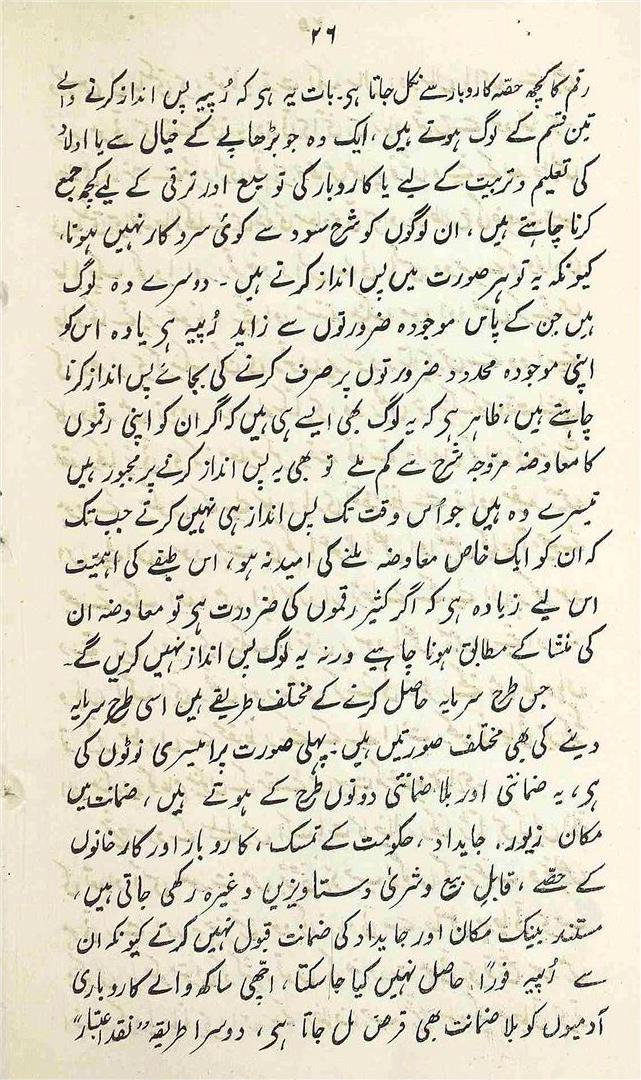 ۲۶
رقم کا کچھ حصّہ کاروبار سے نکل جاتا ہی۔ بات یہ ہی کہ رُپیہ پس انداز کرنے والے
تین قسم کے لوگ ہوتے ہیں، ایک وہ جو بڑھاپے کے خیال سے یا اولاد
کی تعلیم و تربیت کے لیے یا کاروبار کی توسیع اور ترقی کے لیے کچھ جمع
کرنا چاہتے ہیں، ان لوگوں کو شرح سود سے کوئی سروکار نہیں ہوتا،
کیونکہ یہ تو ہر صورت میں پس انداز کرتے ہیں۔ دوسرے وہ لوگ
ہیں جن کے پاس موجودہ ضرورتوں سے زاید رُپیہ ہی یا وہ اس کو
اپنی موجودہ محدود ضرورتوں پر صرف کرنے کی بجائے پس انداز کرنا
چاہتے ہیں، ظاہر ہی کہ یہ لوگ بھی ایسے ہی ہیں کہ اگر ان کو اپنی رقموں
کا معاوضہ مروّجہ شرح سے کم ملے تو بھی یہ پس انداز کرنے پر مجبور ہیں
تیسرے وہ ہیں جو اُس وقت تک پس انداز ہی نہیں کرتے جب تک
کہ ان کو ایک خاص معاوضہ ملنے کی امید نہ ہو، اس طبقے کی اہمیّت
اس لیے زیادہ ہی کہ اگر کثیر رقموں کی ضرورت ہی تو معاوضہ ان
کی منشا کے مطابق ہونا چاہیے ورنہ یہ لوگ پس انداز نہیں کریں گے۔
جس طرح سرمایہ حاصل کرنے کے مختلف طریقے ہیں اسی طرح سرمایہ
دینے کی بھی مختلف صورتیں ہیں۔ پہلی صورت پرامیسری نوٹوں کی
ہی، یہ ضمانتی اور بلا ضمانتی دونوں طرح کے ہوتے ہیں، ضمانت میں
مکان زیور، جایداد، حکومت کے تمسک، کاروبار اور کارخانوں
کے حصّے، قابلِ بیع و شریٰ دستاویزیں وغیرہ رکھی جاتی ہیں،
مستند بینک مکان اور جایداد کی ضمانت قبول نہیں کرتے کیونکہ ان
سے رُپیہ فوراً حاصل نہیں کیا جا سکتا، اچّھی ساکھ والے کاروباری
آدمیوں کو بلا ضمانت بھی قرض مل جاتا ہی، دوسرا طریقہ "نقد اعتبار"